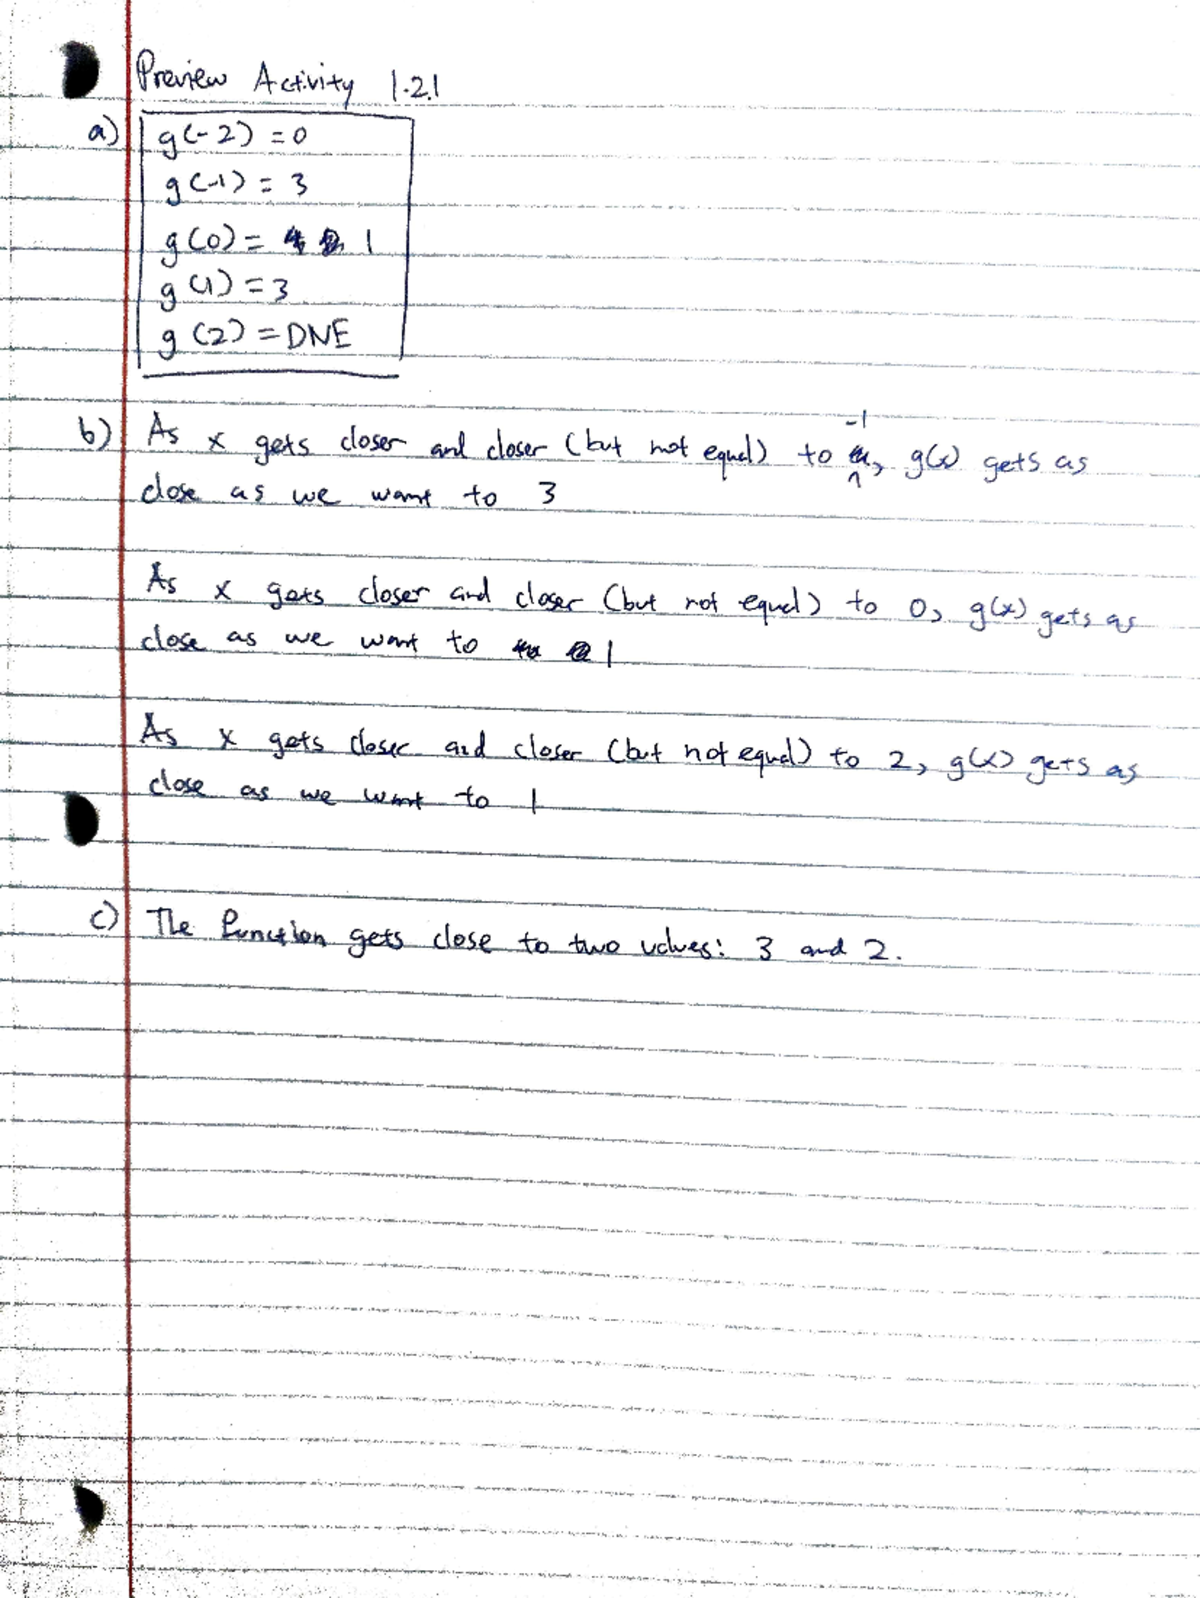 Preview Activity 1.2.1
a) g(-2) = 0
g(-1) = 3
g(0) = 1
g(1) = 3
g(2) = DNE
b) As x gets closer and closer (but not equal) to -1, g(x) gets as
close as we want to 3
As x gets closer and closer (but not equal) to 0, g(x) gets as
close as we want to 1
As x gets closer and closer (but not equal) to 2, g(x) gets as
close as we want to 1
c) The function gets close to two values: 3 and 2.